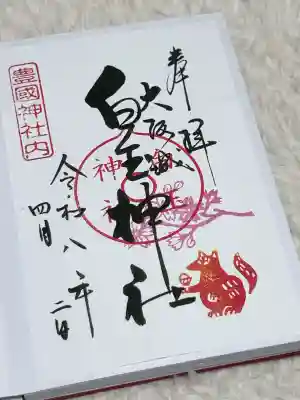 奉拝
大阪城
白玉神社
令和八年
四月二日
豊國神社内